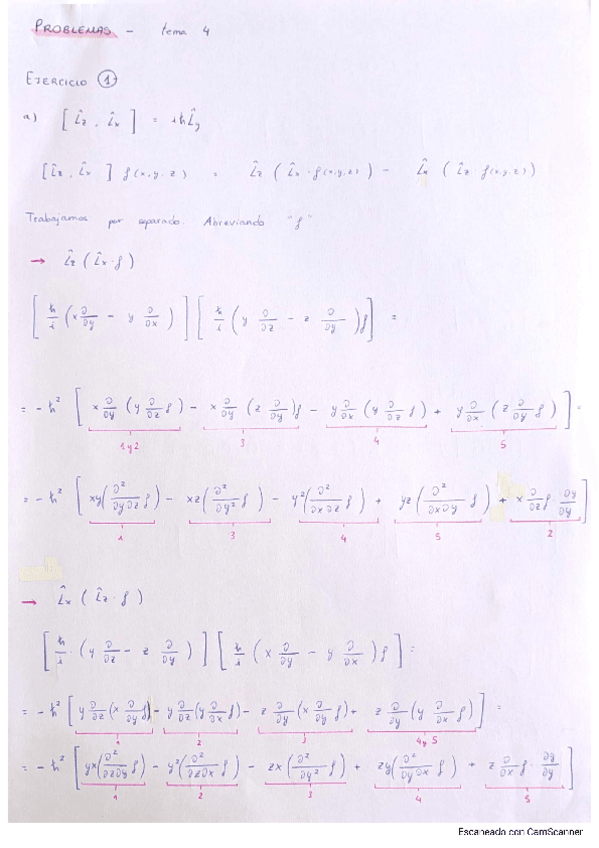 PROBLEMAS - tema 4
EJERCICIO ①
a) [L̂z, L̂x] = iħL̂y
[L̂z, L̂x] f(x,y,z) = L̂z (L̂x · f(x,y,z)) - L̂x (L̂z f(x,y,z))
Trabajamos por separado. Abreviando "f"
→ L̂z (L̂x · f)
[ħ/i (x ∂/∂y - y ∂/∂x)] [ħ/i (y ∂/∂z - z ∂/∂y) f] =
= -ħ² [x ∂/∂y (y ∂/∂z f) - x ∂/∂y (z ∂/∂y) f - y ∂/∂x (y ∂/∂z f) + y ∂/∂x (z ∂/∂y f)] =
1 y 2 3 4 5
= -ħ² [xy (∂²/∂y∂z f) - xz (∂²/∂y² f) - y² (∂²/∂x∂z f) + yz (∂²/∂x∂y f) + x ∂/∂z f · ∂y/∂y]
1 3 4 5 2
→ L̂x (L̂z · f)
[ħ/i · (y ∂/∂z - z ∂/∂y)] [ħ/i (x ∂/∂y - y ∂/∂x) f] =
= -ħ² [y ∂/∂z (x ∂/∂y f) - y ∂/∂z (y ∂/∂x f) - z ∂/∂y (x ∂/∂y f) + z ∂/∂y (y ∂/∂x f)] =
1 2 3 4 y 5
= -ħ² [yx (∂²/∂z∂y f) - y² (∂²/∂z∂x f) - zx (∂²/∂y² f) + zy (∂²/∂y∂x f) + z ∂/∂x f · ∂y/∂y]
1 2 3 4 5
Escaneado con CamScanner